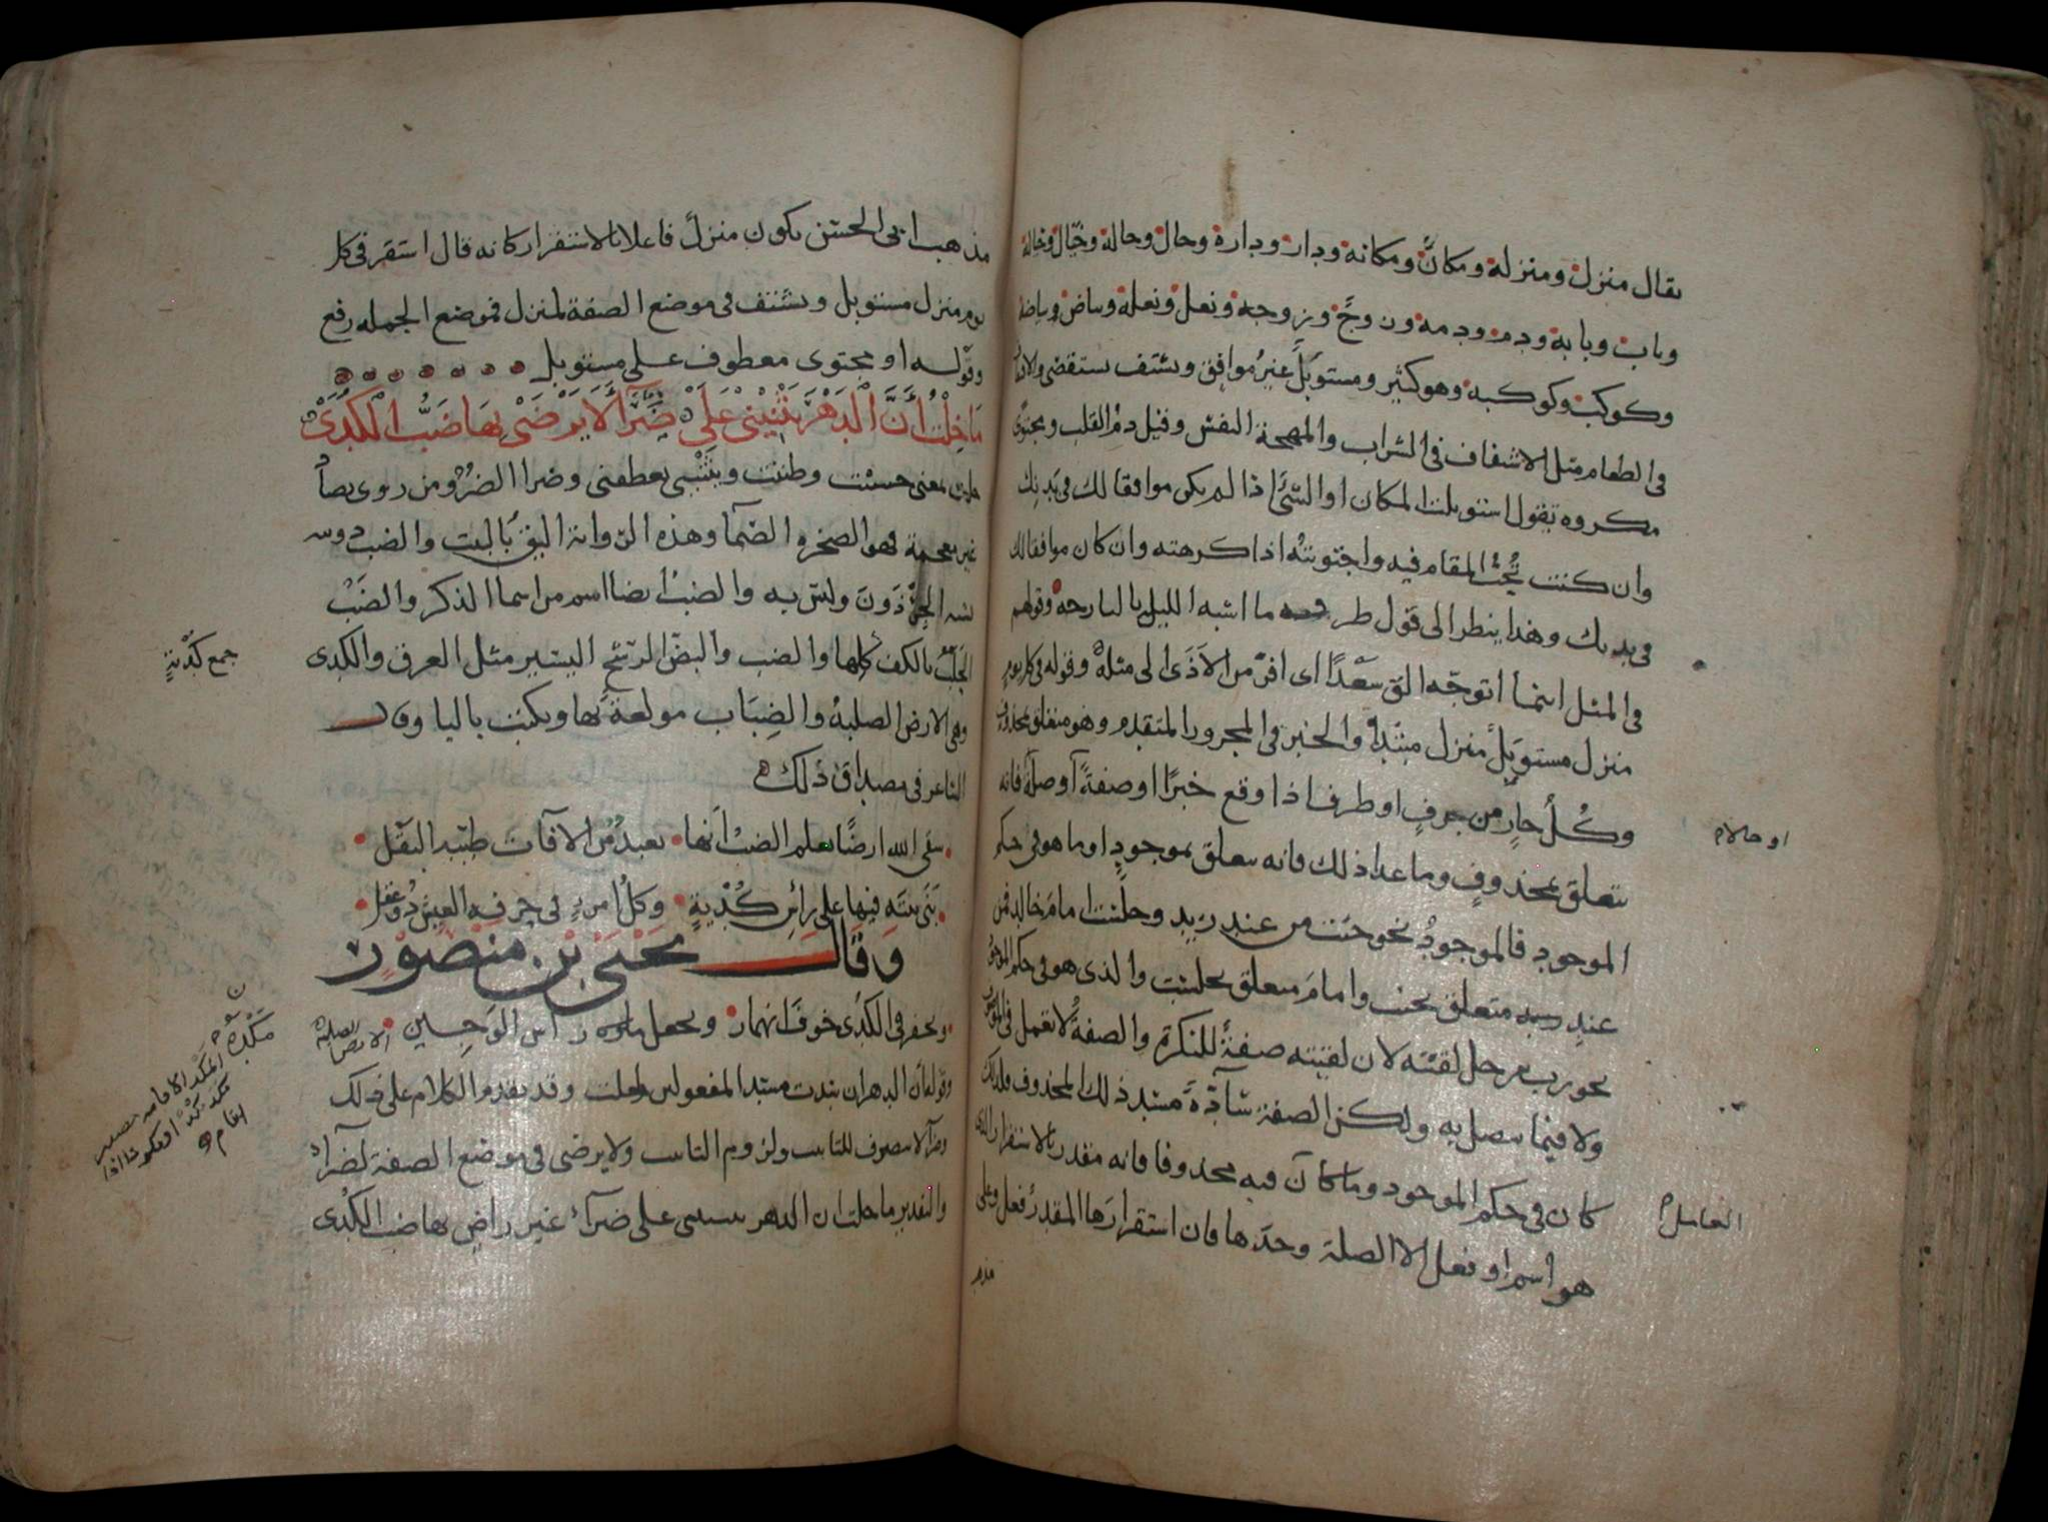 يقال منزل ومنزلة ومكان ومكانة ودار ودارة وحال وحالة وخيال وخيالة
وباب وبابة ودم ودمة وزوج وزوجة ونعل ونعلة وبياض وبياضة
وكوكب وكوكبة وهو كثير ومستوبل غير موافق ويشتف يستقضي والاشتفاف
في الطعام مثل الاشفاف في الشراب والمهجة النفس وقيل دم القلب ومجتوى
مكروه تقول استوبلت المكان او الشئ اذا لم يكن موافقا لك في بدنك
وان كنت تحب المقام فيه واجتويته اذا كرهته وان كان موافقا لك
في بدنك وهذا ينظر الى قول طرفة ما اشبه الليلة بالبارحة وقولهم
في المثل اينما اتوجه الق سعدا اى افر من الاذى الى مثله وقوله في كل يوم
منزل مستوبل منزل مبتدا والخبر في المجرور المتقدم وهو متعلق بمحذوف
وكل جار من حرف او ظرف اذا وقع خبرا او صفة او صلة فانه
او حالا م
يتعلق بمحذوف وما عدا ذلك فانه يتعلق بموجود او ما هو في حكم
الموجود فالموجود نحو جئت من عند زيد وجلست امام خالد فمن
عند زيد متعلق بجئت وامام متعلق بجلست والذي هو في حكم الموجود
نحو رب رجل لقيته لان لقيته صفة للنكرة والصفة لا تعمل في الموصوف
ولا فيما يتصل به ولكن الصفة سادة مسد ذلك المحذوف فلذلك
كان في حكم الموجود وما كان فيه محذوفا فانه مقدر بالاستقرار الذي
العامل
هو اسم او فعل الا الصلة وحدها فان استقرارها المقدر فعل وعلى
مذهب ابى الحسن يكون منزل فاعلا بالاستقرار كانه قال استقر في كل
يوم منزل مستوبل ويشتف في موضع الصفة لمنزل فموضع الجملة رفع
وقوله او مجتوى معطوف على مستوبل
ما خلت ان الدهر يثنينى على ضرآ لا يرضى بها ضب الكدى
خلت بمعنى حسبت وظننت ويثنينى يعطفنى وضرا الضر ومن روى بصاد
غير معجمة فهو الصخرة الصما وهذه الرواية اليق بالبيت والضب دويبة
يشبه الجرذون وليس به والضب ايضا اسم من اسما الذكر والضب
الحلب بالكف كلها والضب والبض الرشح اليسير مثل العرق والكدى
جمع كدية
وهى الارض الصلبة والضباب مولعة بها ويكتب باليا وقال
الشاعر في مصداق ذلك
سقى الله ارضا يعلم الضب انها بعيد من الافات طيبة البقل
بنى بيته فيها على رأس كدية وكل امرئ في حرفة العيش ذو عقل
وقال يحيى بن منصور
ويحفر في الكدى خوف انهيار ويجعل راس الوجين
الارض الصلبة
وقوله ان الدهر ان سدت مسد المفعولين لخلت وقد تقدم الكلام على ذلك
وضرآ لا ينصرف للتانيث ولزوم التانيث ولا يرضى في موضع الصفة لضرآ
والتقدير ما خلت ان الدهر يثنينى على ضرآ غير راض بها ضب الكدى